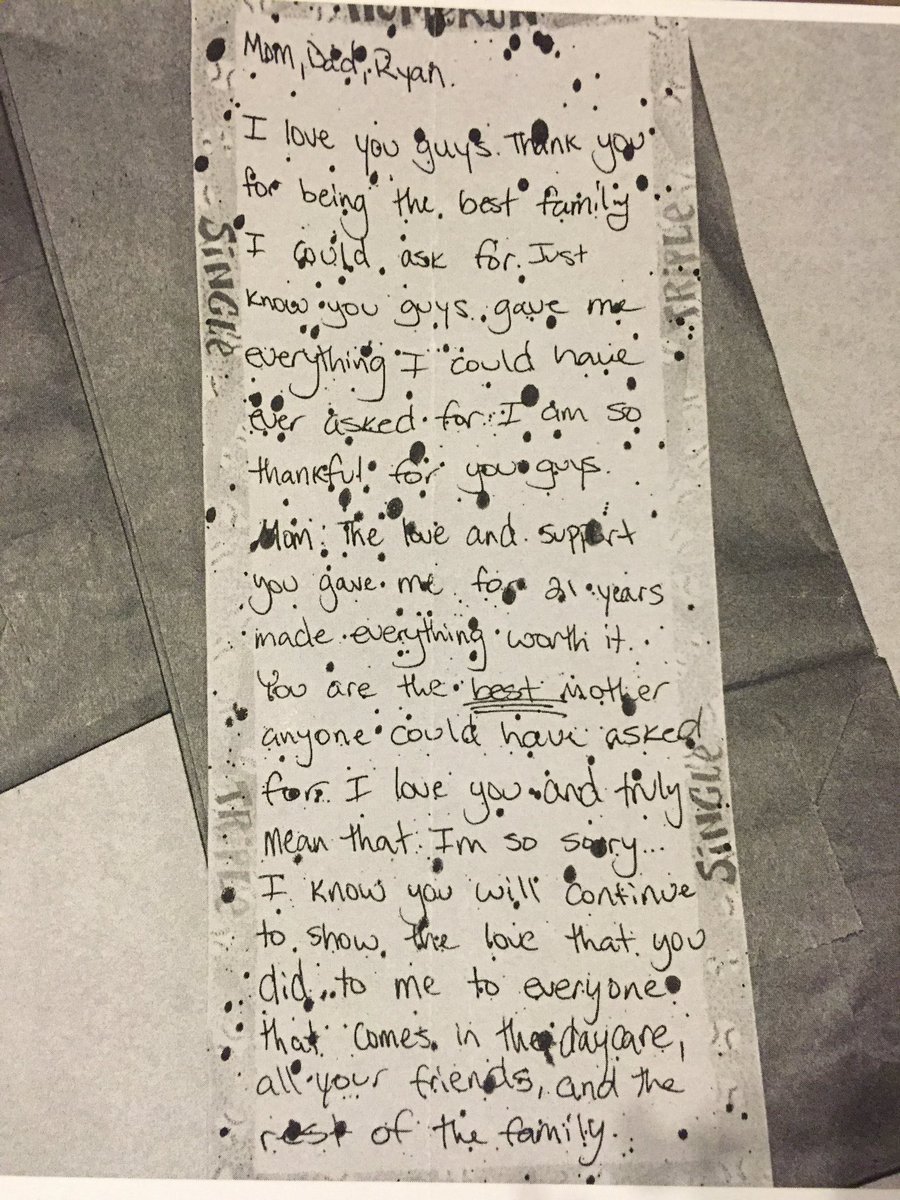 HOMERUN
Mom, Dad, Ryan.
I love you guys. Thank you
for being the best family
I could ask for. Just
know you guys gave me
everything I could have
ever asked for. I am so
thankful for you guys.
Mom: The love and support
you gave me for 21 years
made everything worth it.
You are the best mother
anyone could have asked
for. I love you and truly
mean that. Im so sorry...
I know you will continue
to show the love that you
did to me to everyone
that comes in the daycare,
all your friends, and the
rest of the family.
SINGLE
TRIPLE
TRIPLE
SINGLE